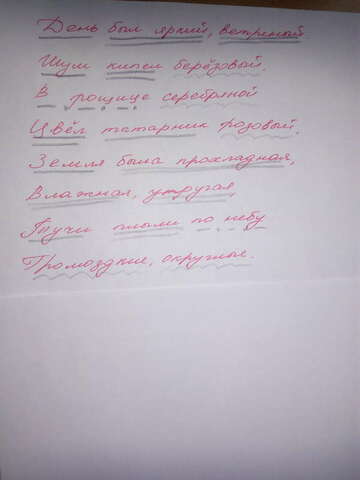 День был яркий, ветреный.
Шум кипел берёзовый.
В рощице серебряной
Цвёл татарник розовый.
Земля была прохладная,
Влажная, упругая,
Тучи плыли по небу
Громоздкие, округлые.